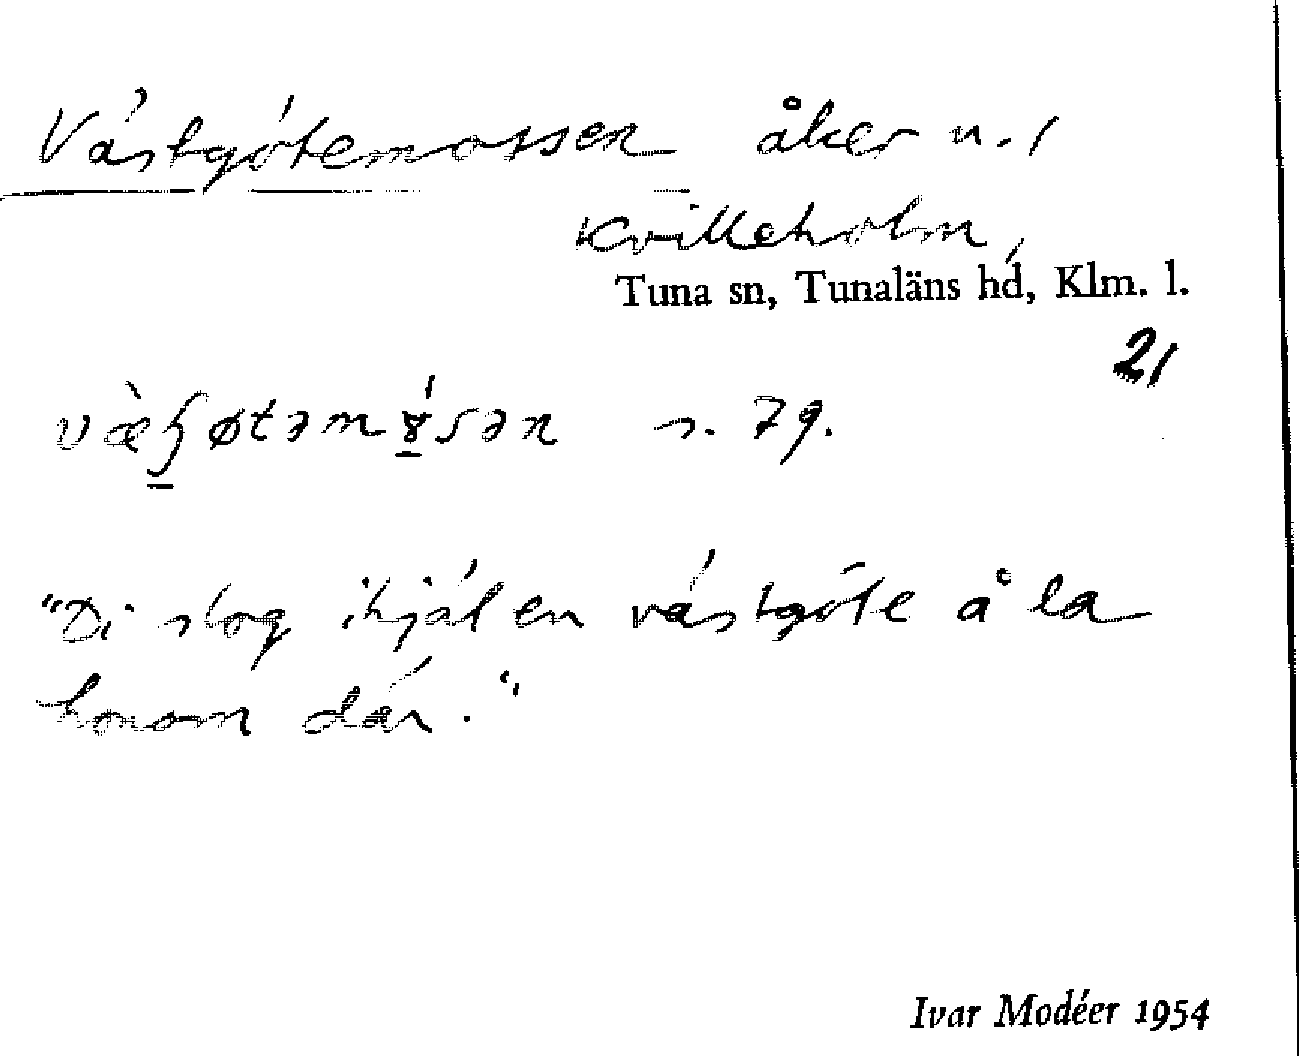 Västgötemossen åker u.1
Kvilleholm,
Tuna sn, Tunaläns hd, Klm. l.
21
s. 79.
"Di slog ihjäl en västgöte å la
honom där."
Ivar Modéer 1954